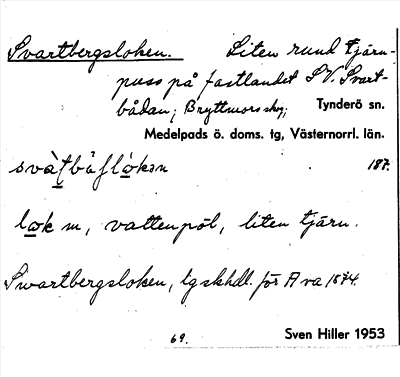 Svartbergsloken. Liten rund tjärn-
puss på fastlandet S.V. Svart-
bådan; Bryttmorsskog; Tynderö sn.
Medelpads ö. doms. tg, Västernorrl. län.
187.
lok m, vattenpöl, liten tjärn.
Swartbergsloken, tgskhdl. för A va 1874.
69. Sven Hiller 1953